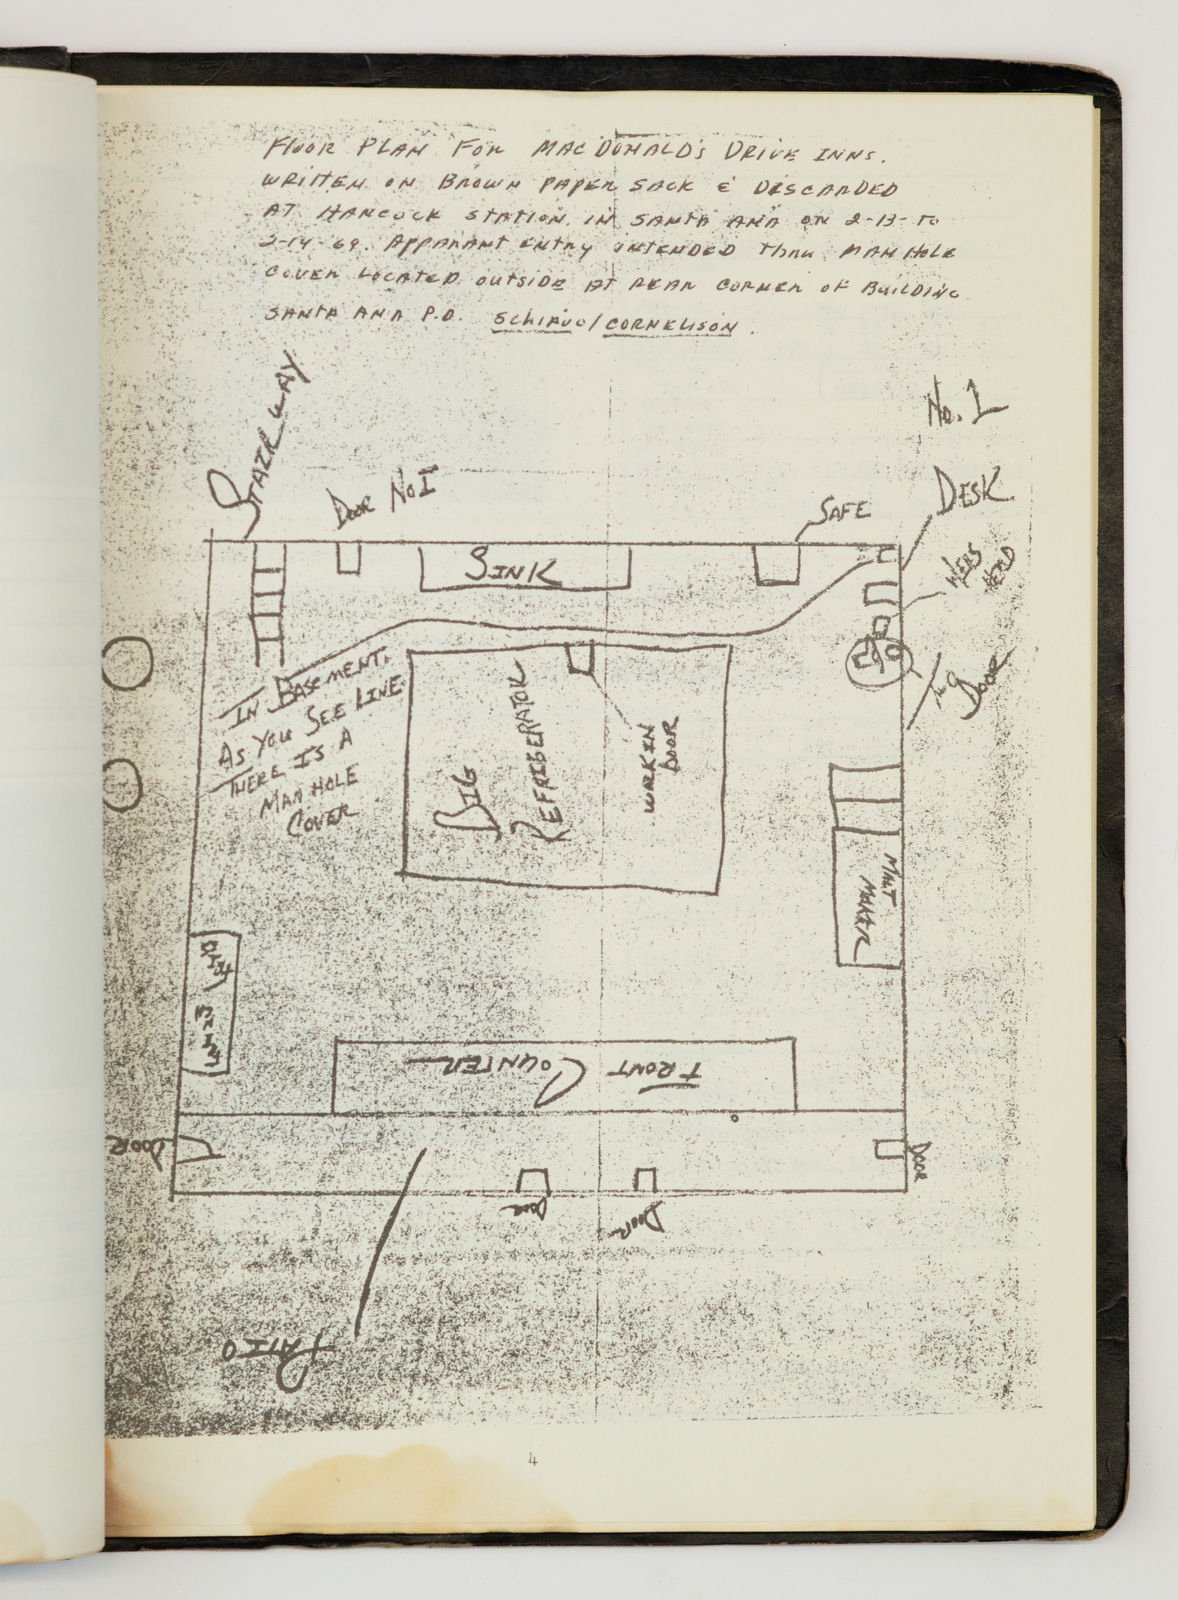 FLOOR PLAN FOR MACDONALD'S DRIVE INNS.
WRITTEN ON BROWN PAPER SACK & DISCARDED
AT HANCOCK STATION IN SANTA ANA ON 2-13- TO
2-14-69. APPARANT ENTRY INTENDED THRU MAN HOLE
COVER LOCATED OUTSIDE AT REAR CORNER OF BUILDING.
SANTA ANA P.D. SCHIAVO/CORNELISON.
No. 1
STAIRWAY
DOOR No I
SAFE
DESK
SINK
DOOR
IN BASEMENT.
AS YOU SEE LINE
THERE IS A
MAN HOLE
COVER
BIG
REFRIGERATOR
WALK IN
DOOR
MALT
MAKER
FRONT COUNTER
DOOR
DOOR
DOOR
DOOR
PATIO
4